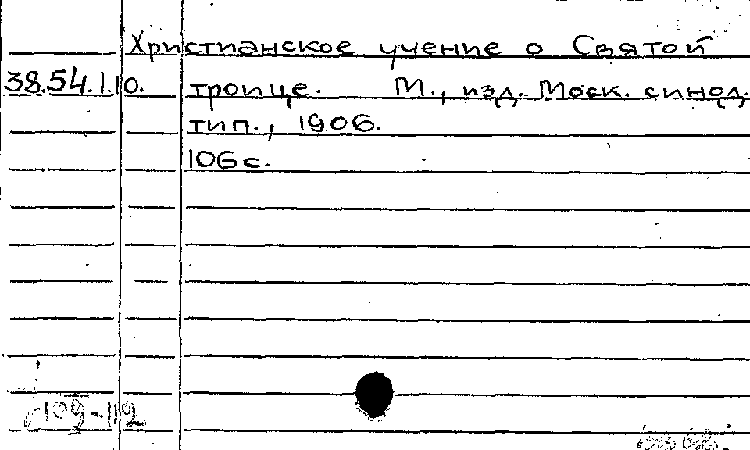 Христианское учение о Святой
38.54.1.10. троице. М., изд. Моск. синод.
тип., 1906.
106 с.
109-112